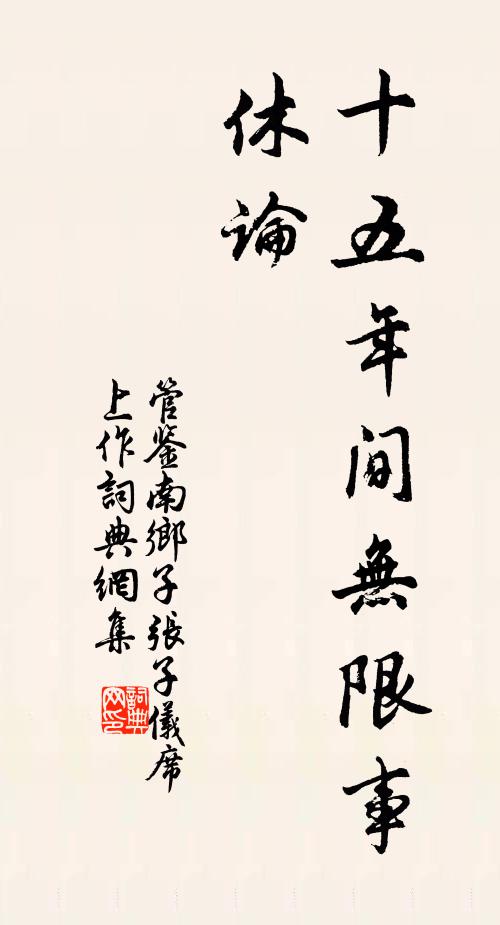 十五年間無限事
休論
管鉴南鄉子張子儀席
上作詞典網集
詞典网印